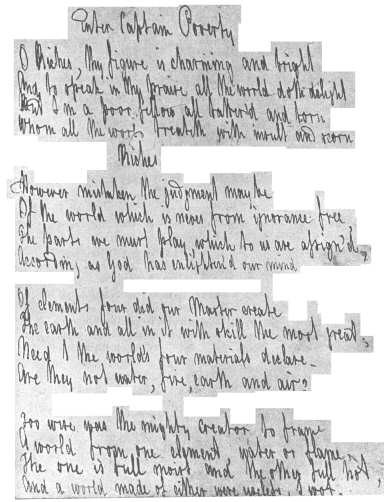 Enter Captain Poverty
O Riches, thy figure is charming and bright
And to speak in thy praise all the world doth delight
But I'm a poor fellow all tatter'd and torn
Whom all the world treateth with insult and scorn
Riches
However mistaken the judgment may be
Of the world which is never from ignorance free
The parts we must play, which to us are assign'd,
According, as God has enlighten'd our mind
Of elements four did our Master create
The earth and all in it with skill the most great,
Need I the world's four materials declare
Are they not water, fire, earth and air?
Too wise was the mighty creator to frame
A world from one element, water or flame
The one is full moist and the other full hot
And a world made of either were useless, I wot